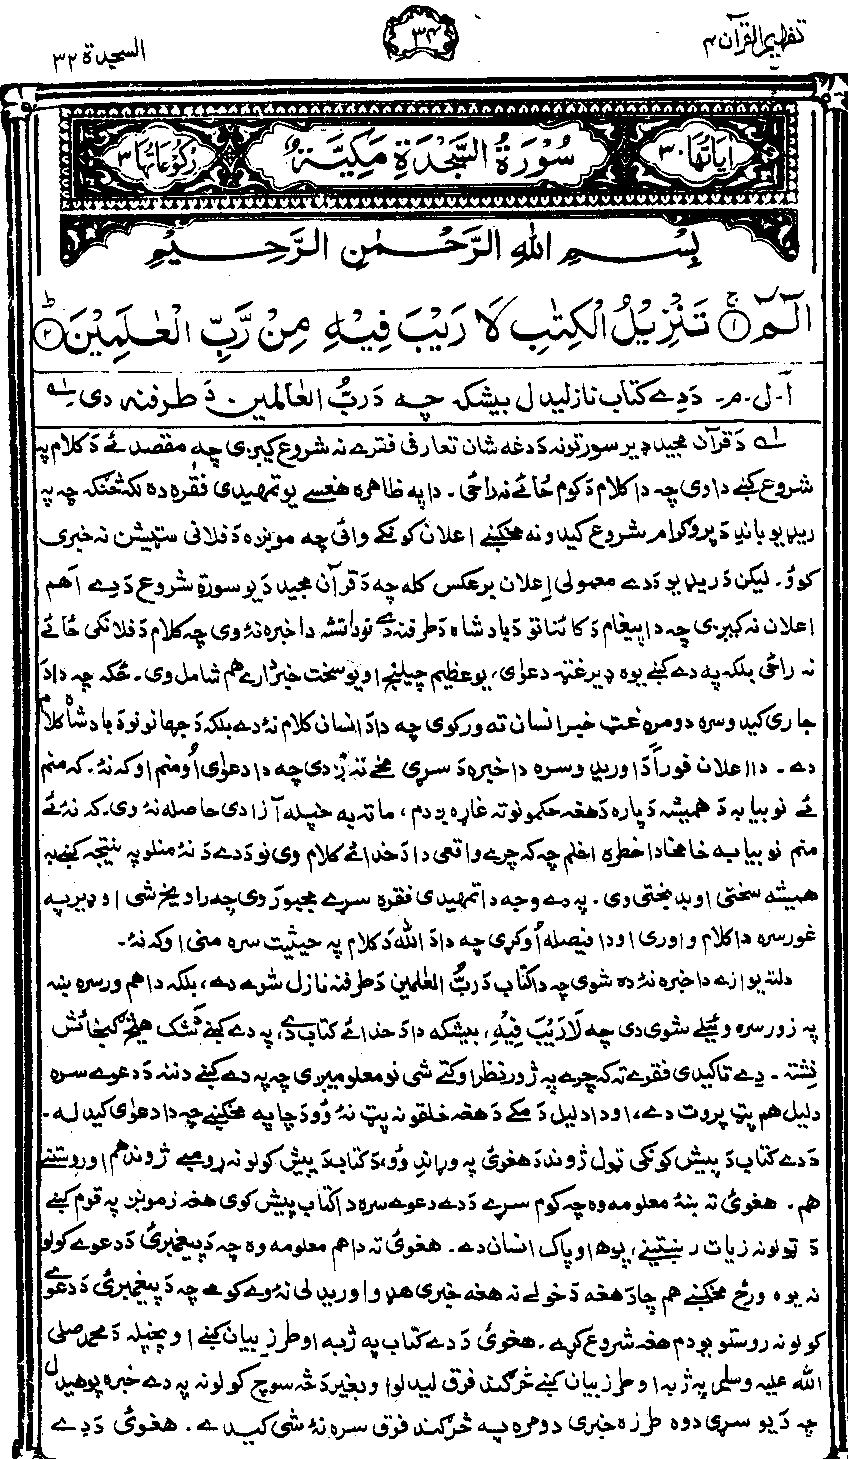 تفهيم القرآن ۴
۳۴
السجدة ۳۲
اٰياتُهَا ۳۰
سُوْرَةُ السَّجْدَةِ مَكِّيَّةٌ
رُكُوْعَاتُهَا ۳
بِسْمِ اللهِ الرَّحْمٰنِ الرَّحِيْمِ
الٓمّٓ ۚ﴿۱﴾ تَنْزِيْلُ الْكِتٰبِ لَا رَيْبَ فِيْهِ مِنْ رَّبِّ الْعٰلَمِيْنَ ؕ﴿۲﴾
اٰ۔ل۔م۔ دَ دے کتاب نازلیدل بیشکه چه دَ ربُّ العالمین دَ طرفنه دی ـلـه
ـلـه دَ قرآن مجید ډیر سورتونه دَ دغه شان تعارفی فقرے نه شروع کیږی چه مقصد ئے دَ کلام په
شروع کښے دا وی چه دا کلام دَ کوم ځائے نه راځی۔ دا په ظاهره هغسے یو تمهیدی فقره ده لکه څنګه چه په
ریډیو باندِ دَ پروګرام شروع کیدو نه مخکښے اعلان کونکے وائی چه مونږه دَ فلانی سټیشن نه خبری
کوؤ۔ لیکن دَ ریډیو دَ دے معمولی اِعلان برعکس کله چه دَ قرآن مجید دَ یو سورة شروع دَ دے اَهم
اعلان نه کیږی چه دا پیغام دَ کائناتو دَ بادشاه دَ طرفنه دے نو دا تشه دا خبره نۀ وی چه کلام دَ فلانکی ځائے
نه راځی بلکه په دے کښے یوه ډیر غټه دعوٰی، یو عظیم چیلنج او یو سخت خبردارے هم شامل وی۔ ځکه چه دا دَ
جاری کیدو سره دومره غټ خبر انسان ته ورکوی چه دا دَ انسان کلام نۀ دے بلکه دَ جهانونو دَ بادشاه کلام
دے۔ دا اعلان فوراً دَ اوریدو سره دا خبره دَ سړی مخے ته ږدی چه دا دعوٰی اُومنم او که نۀ۔ که منم
ئے نو بیا به دَ همیشه دَ پاره دَ هغه حکمونو ته غاړه ږدم، ما ته به خپله آزادی حاصله نۀ وی۔ که نۀ ئے
منم نو بیا به خامخا دا خطره اخلم چه که چرے واقعی دا دَ خدائے کلام وی نو دَ دے دَ نۀ منلو په نتیجه کښے به
همیشه سختی او بدبختی وی۔ په دے وجه دا تمهیدی فقره سړے مجبوروی چه راویخ شی او ډیر په
غور سره دا کلام واوری او دا فیصله اُوکړی چه دا دَ الله دَ کلام په حیثیت سره منی او که نۀ۔
دلته یوازے دا خبره نۀ ده شوی چه دا کتاب دَ ربُّ العٰلمین دَ طرفنه نازل شوے دے، بلکه دا هم ورسره ښه
په زور سره وئیلے شوی دی چه لَا رَیْبَ فِیْهِ، بیشکه دا دَ خدائے کتاب دے، په دے کښے دَ شک هیڅ ګنجائش
نِشته۔ دِے تاکیدی فقرے ته که چرے په ژور نظر اوکتے شی نو معلومیږی چه په دے کښے دننه دَ دعوے سره
دلیل هم پټ پروت دے، او دا دلیل دَ مکے دَ هغه خلقو نه پټ نۀ وُو دَ چا په مخکښے چه دا دعوٰی کیدله۔
دَ دے کتاب دَ پیش کونکی ټول ژوند دَ هغوئ په وړاندِ وُو، دَ کتاب دَ پیش کولو نه رومبے ژوند هم او روستنے
هم۔ هغوئ ته ښۀ معلومه وه چه کوم سړے دَ دے دعوے سره دا کتاب پیش کوی هغه زمونږ په قوم کښے
دَ ټولو نه زیات رښتینے، پوهـ او پاک انسان دے۔ هغوئ ته دا هم معلومه وه چه دَ پیغمبرئ دَ دعوے کولو
نه یوه ورځ مخکښے هم چا دَ هغه دَ خولے نه هغه خبری هډو اوریدلی نۀ وے کومے چه دَ پیغمبرئ دَ دعوے
کولو نه روستو یو دم هغه شروع کړے۔ هغوئ دَ دے کتاب په ژبه او طرزِ بیان کښے او پخپله دَ محمد صلی
الله علیه وسلم په ژبه او طرز بیان کښے څرګند فرق لیدلو او بغیر دَ څه سوچ کولو نه په دے خبره پوهیدل
چه دَ یو سړی دوه طرزه خبری دومره په څرګند فرق سره نۀ شی کیدے۔ هغوئ دَ دے